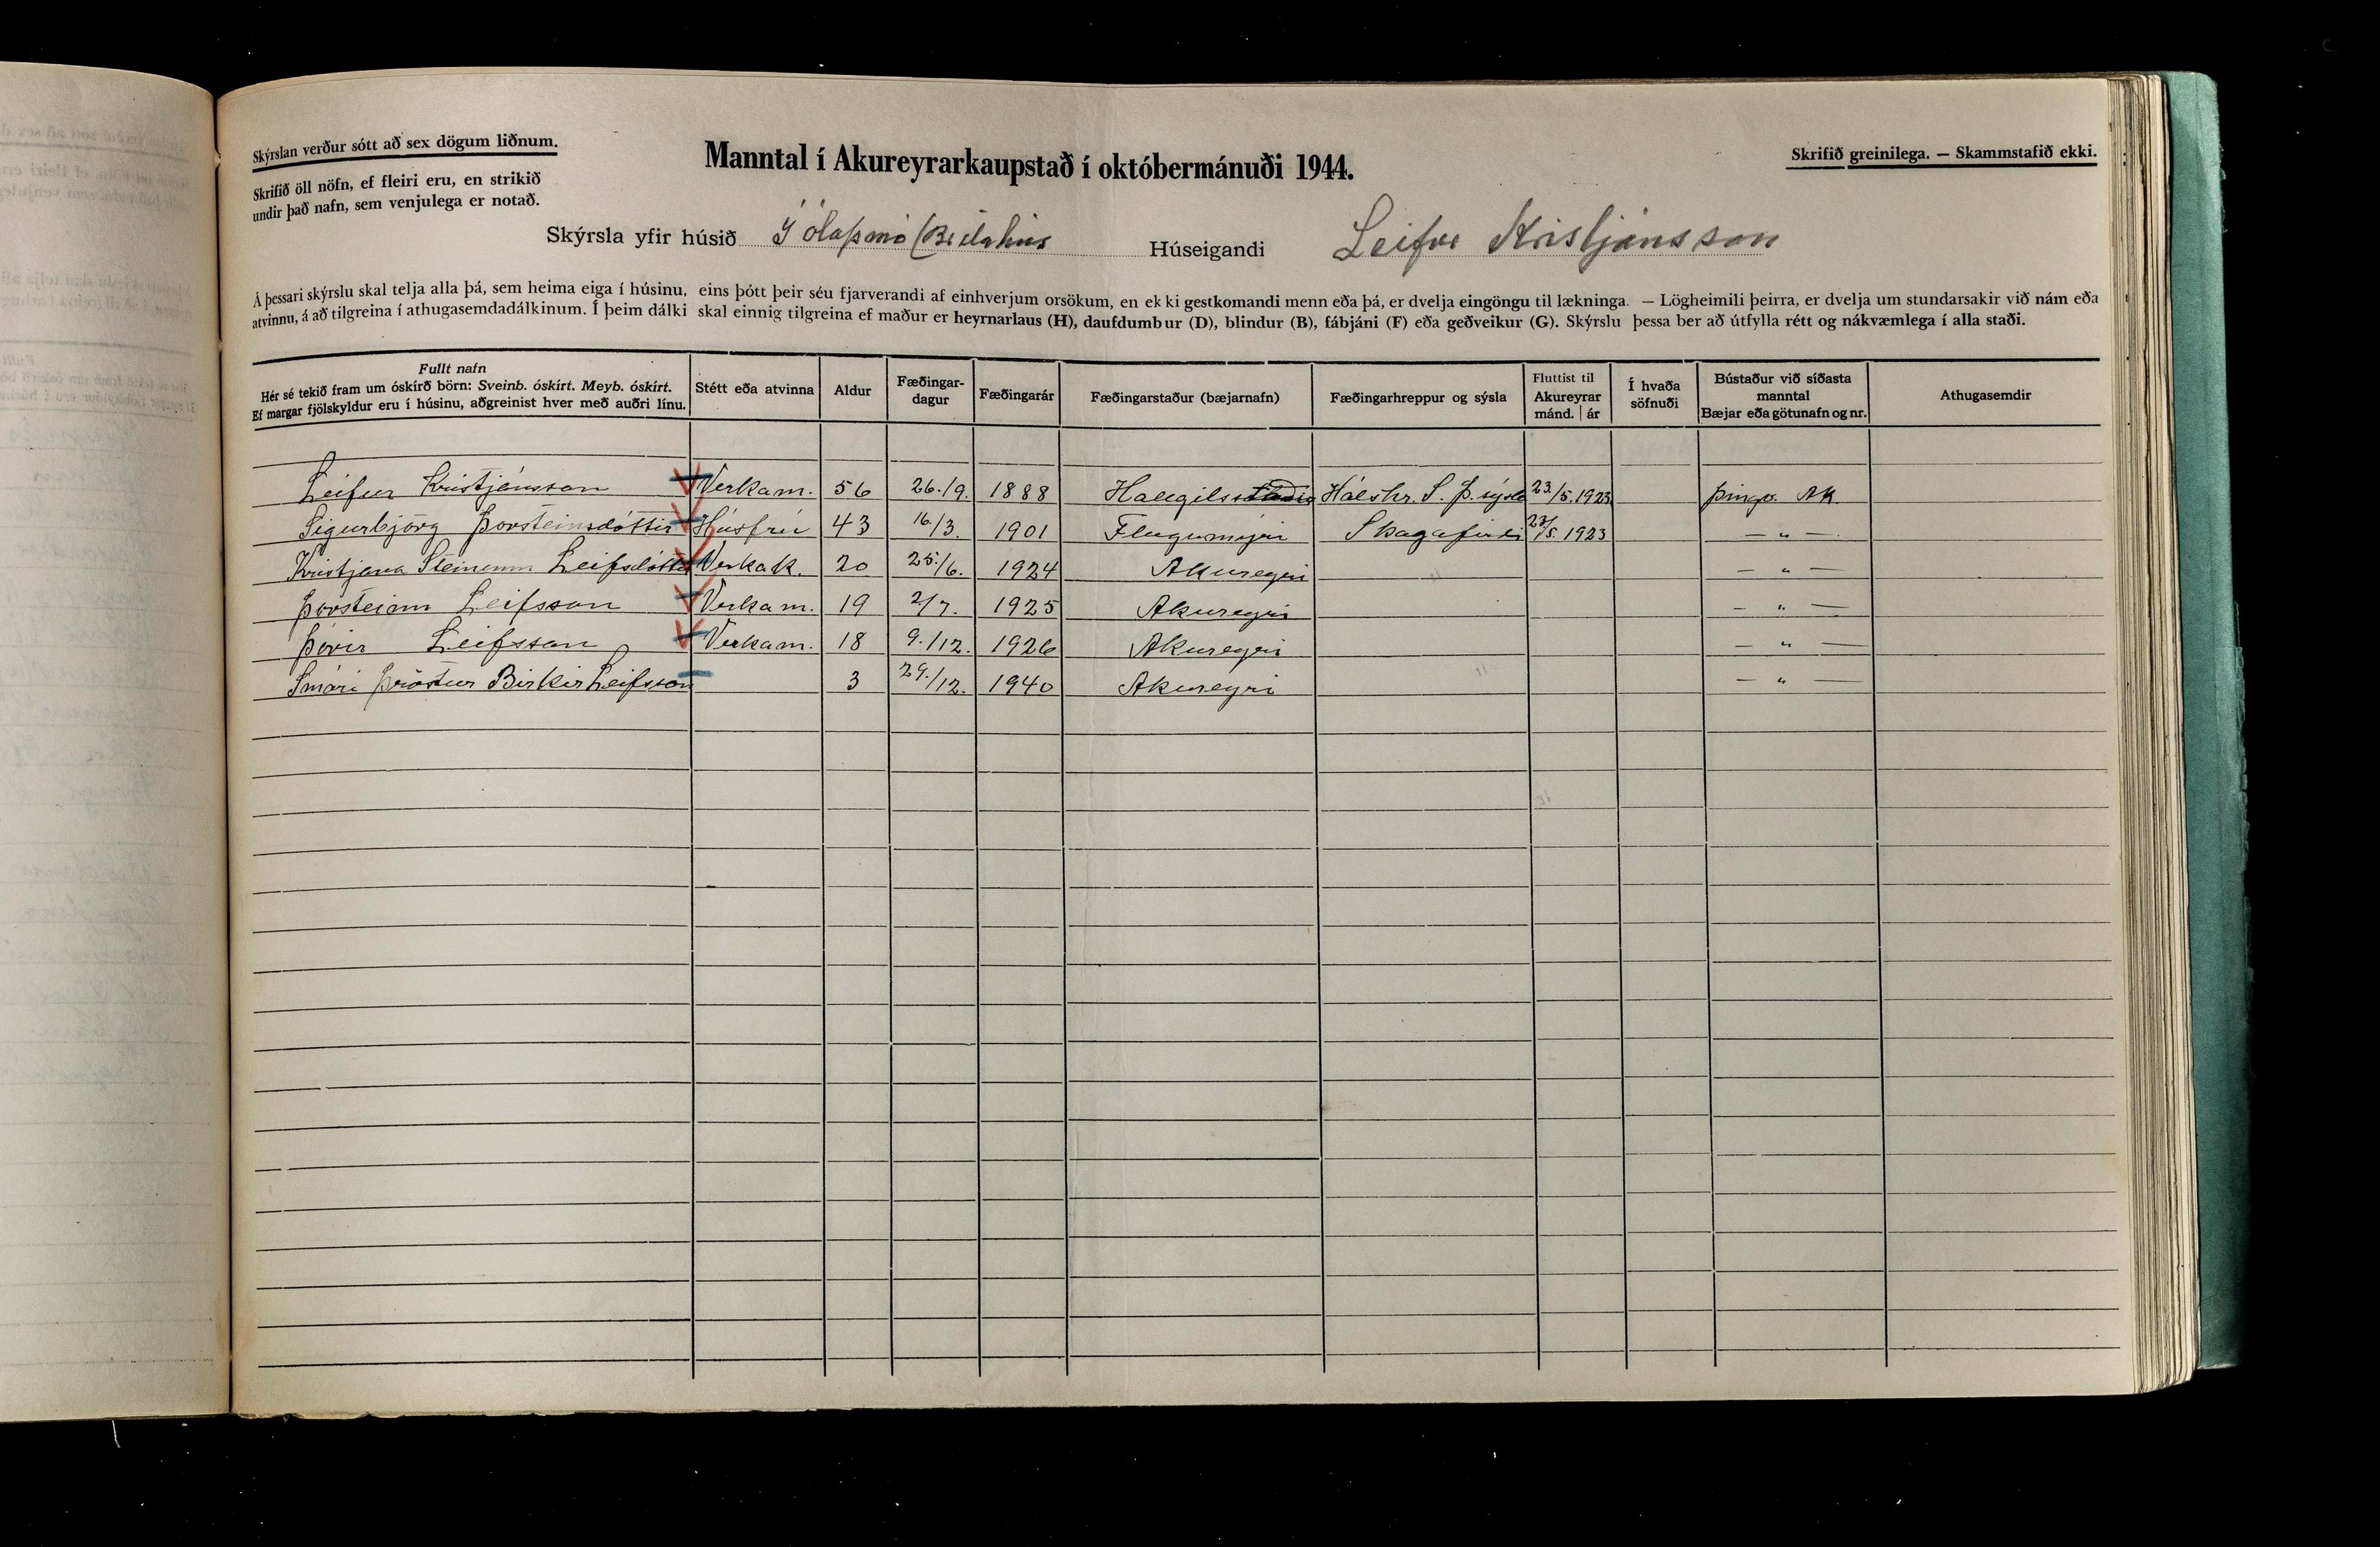 Skýrslan verður sótt að sex dögum liðnum.
Skrifið öll nöfn, ef fleiri eru, en strikið
undir það nafn, sem venjulega er notað.
Manntal í Akureyrarkaupstað í októbermánuði 1944.
Skrifið greinilega. — Skammstafið ekki.
Skýrsla yfir húsið Húseigandi Leifur Kristjánsson
Á þessari skýrslu skal telja alla þá, sem heima eiga í húsinu, eins þótt þeir séu fjarverandi af einhverjum orsökum, en ekki gestkomandi menn eða þá, er dvelja eingöngu til lækninga. — Lögheimili þeirra, er dvelja um stundarsakir við nám eða
atvinnu, á að tilgreina í athugasemdadálkinum. Í þeim dálki skal einnig tilgreina ef maður er heyrnarlaus (H), daufdumbur (D), blindur (B), fábjáni (F) eða geðveikur (G). Skýrslu þessa ber að útfylla rétt og nákvæmlega í alla staði.
Fullt nafn
Hér sé tekið fram um óskírð börn: Sveinb. óskírt. Meyb. óskírt.
Ef margar fjölskyldur eru í húsinu, aðgreinist hver með auðri línu.
Stétt eða atvinna
Aldur
Fæðingar-
dagur
Fæðingarár
Fæðingarstaður (bæjarnafn)
Fæðingarhreppur og sýsla
Fluttist til
Akureyrar
mánd. | ár
Í hvaða
söfnuði
Bústaður við síðasta
manntal
Bæjar eða götunafn og nr.
Athugasemdir
Leifur Kristjánsson Verkam. 56 26./9. 1888 Hallgilsstaðir Hálshr. S. Þ. sýsla 23./5. 1923 Þingv. AK
Sigurbjörg Þorsteinsdóttir Húsfrú 43 16./3. 1901 Flugumýri Skagafirði 23/5. 1923 — „ —
Kristjana Steinunn Leifsdóttir Verkak. 20 25./6. 1924 Akureyri — „ —
Þorsteinn Leifsson Verkam. 19 2/7. 1925 Akureyri — „ —
Þórir Leifsson Verkam. 18 9./12. 1926 Akureyri — „ —
Smári Þröstur Birkir Leifsson 3 29./12. 1940 Akureyri — „ —